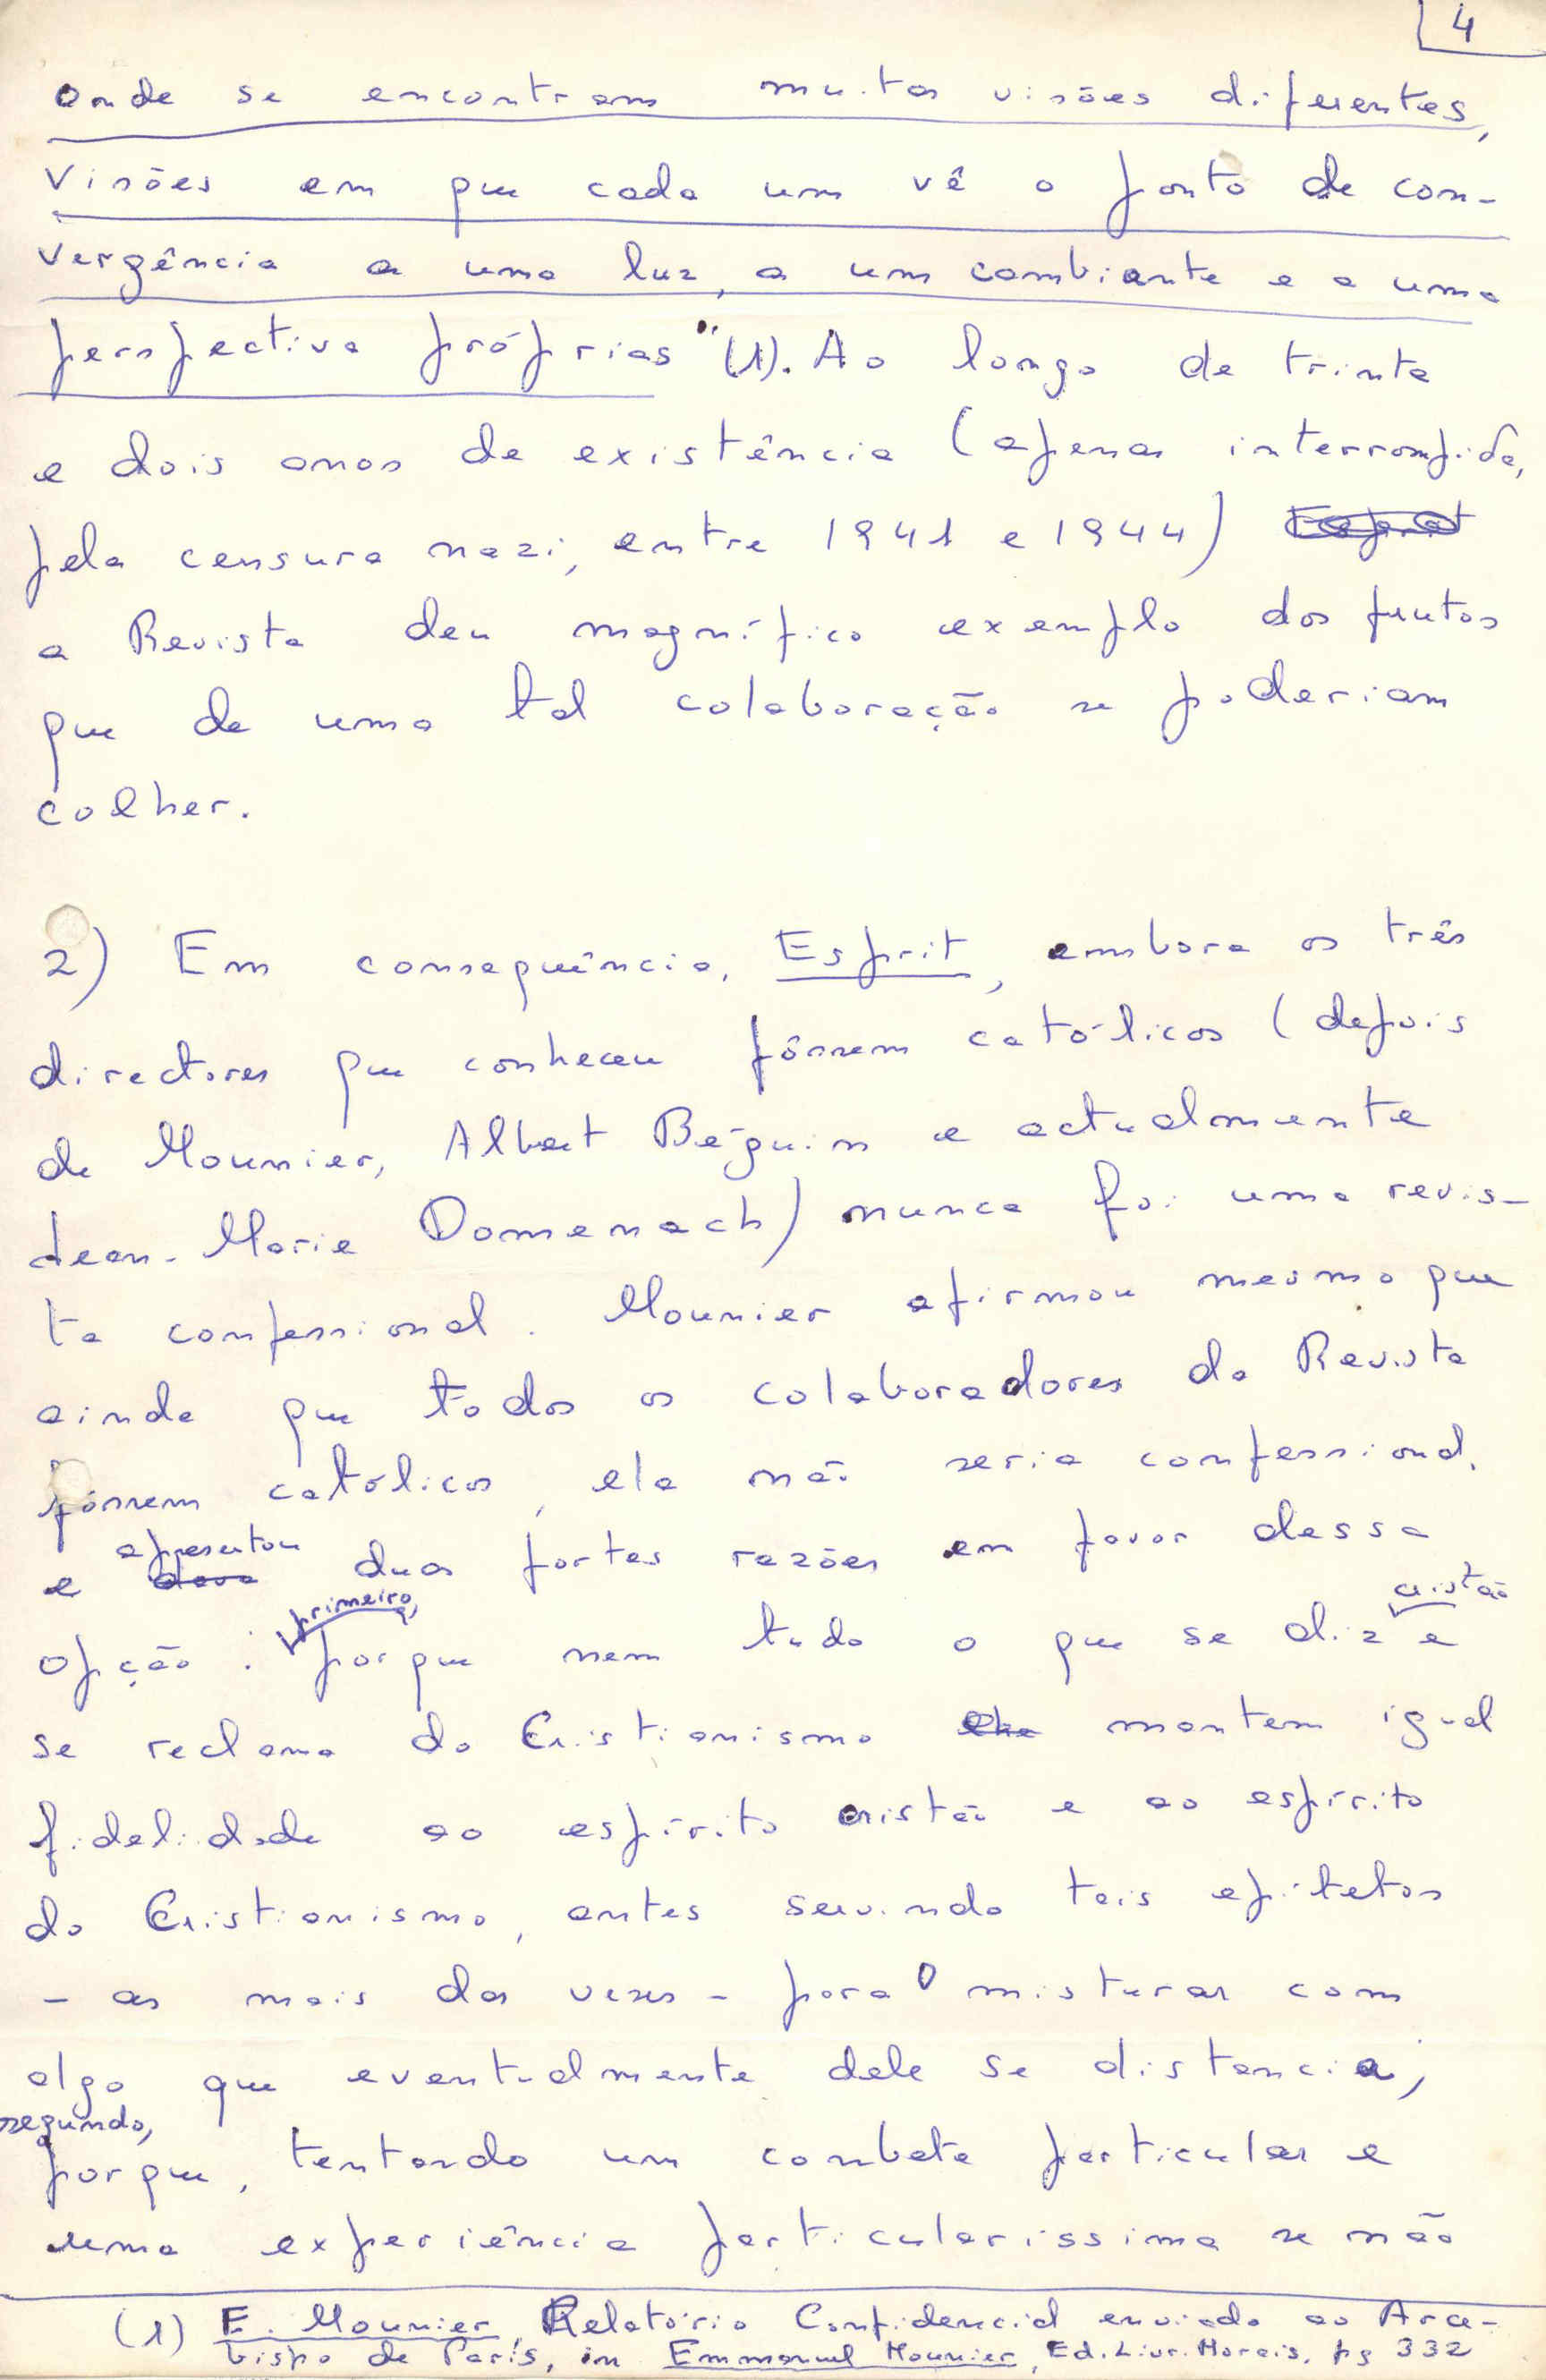 4
onde se encontram muitas visões diferentes,
visões em que cada um vê o ponto de con-
vergência a uma luz, a um cambiante e a uma
perspectiva próprias" (1). Ao longo de trinta
e dois anos de existência (apenas interrompida,
pela censura nazi, entre 1941 e 1944)
a Revista deu magnífico exemplo dos frutos
que de uma tal colaboração se poderiam
colher.
2) Em consequência, Esprit, embora os três
directores que conheceu fôssem católicos (depois
de Mounier, Albert Béguin e actualmente
Jean-Marie Domenach) nunca foi uma revis-
ta confessional. Mounier afirmou mesmo que
ainda que todos os colaboradores da Revista
fôssem católicos, ela não seria confessional.
e apresentou duas fortes razões em favor dessa
opção: primeiro, porque nem tudo o que se diz cristão e
se reclama do Cristianismo mantem igual
fidelidade ao espírito cristão e ao espírito
do Cristianismo, antes servindo tais epítetos
- as mais das vezes - para o misturar com
algo que eventualmente dele se distancia;
segundo,
porque, tentando um combate particular e
uma experiência particularíssima se não
(1) E. Mounier, Relatório Confidencial enviado ao Arce-
bispo de Paris, in Emmanuel Mounier, Ed. Livr. Morais, pg 332